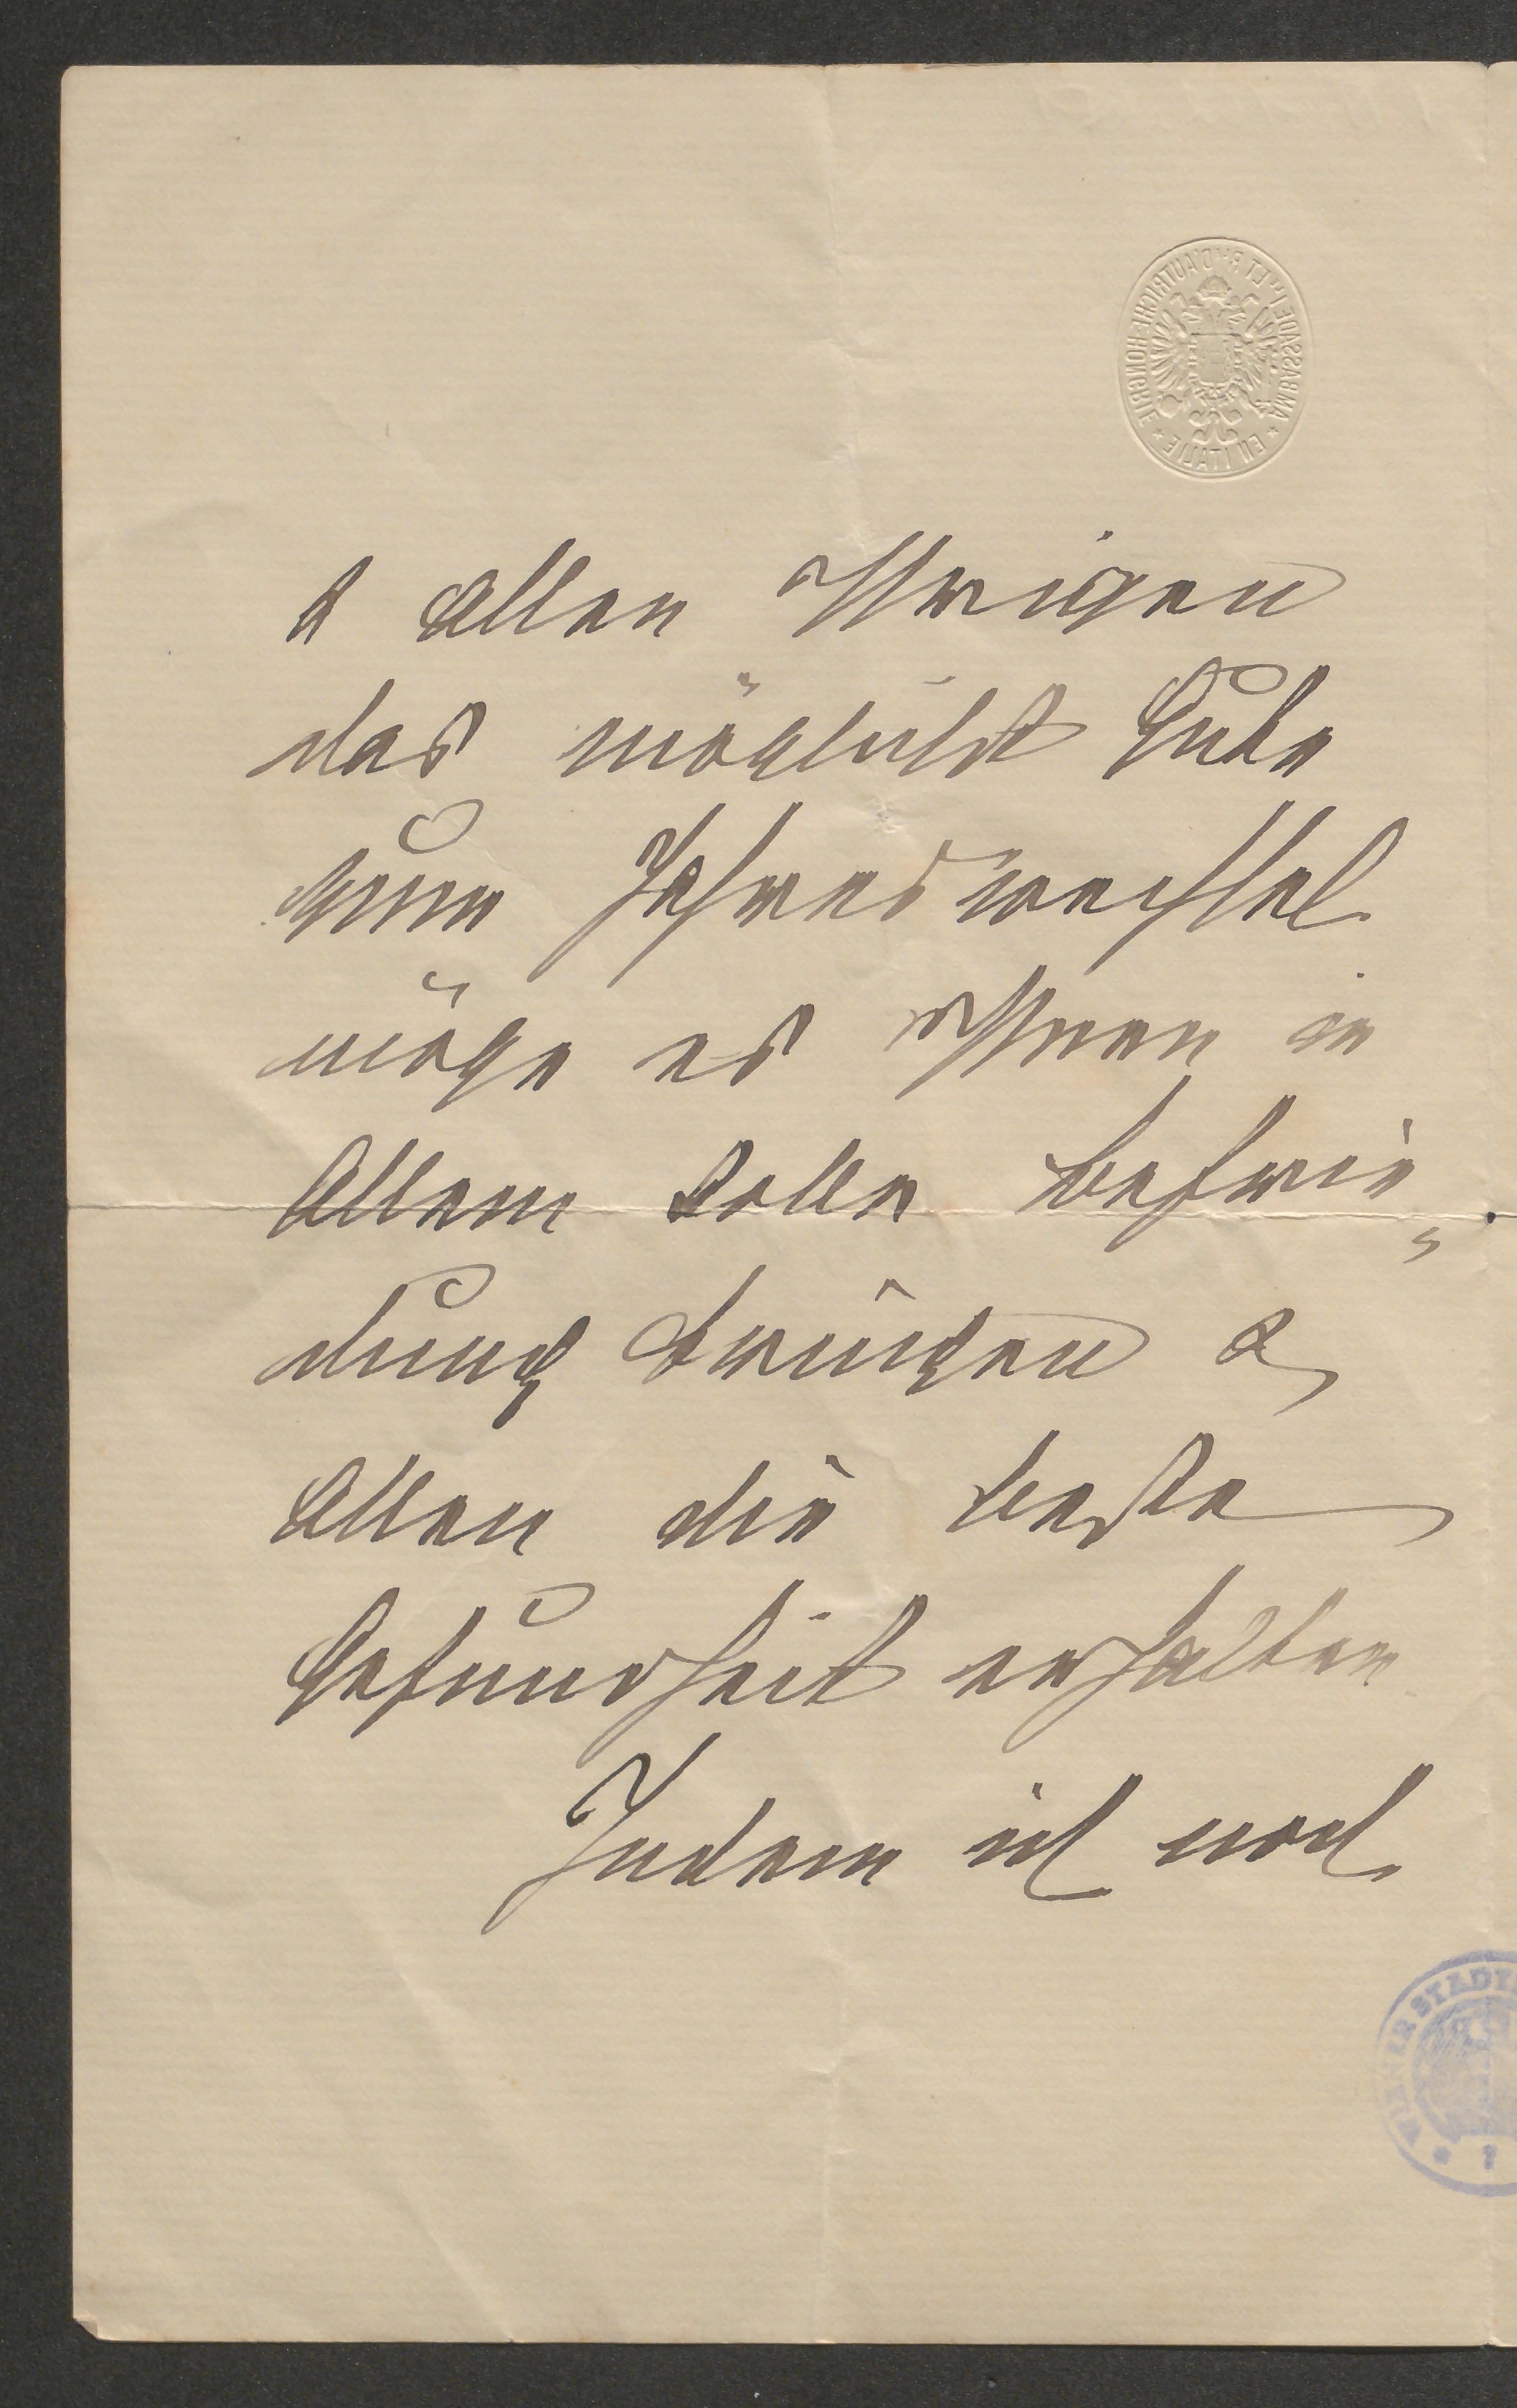 AMBASSADE I^le ET R^le D'AUTRICHE-HONGRIE * EN ITALIE *
& Allen Ihrigen
das möglichst Gute
zum Jahreswechsel
möge es Ihnen in
Allem volle Befrie„
dung bringen &
Allen die beste
Gesundheit erhalten
Indem ich noch
WIENER STADT